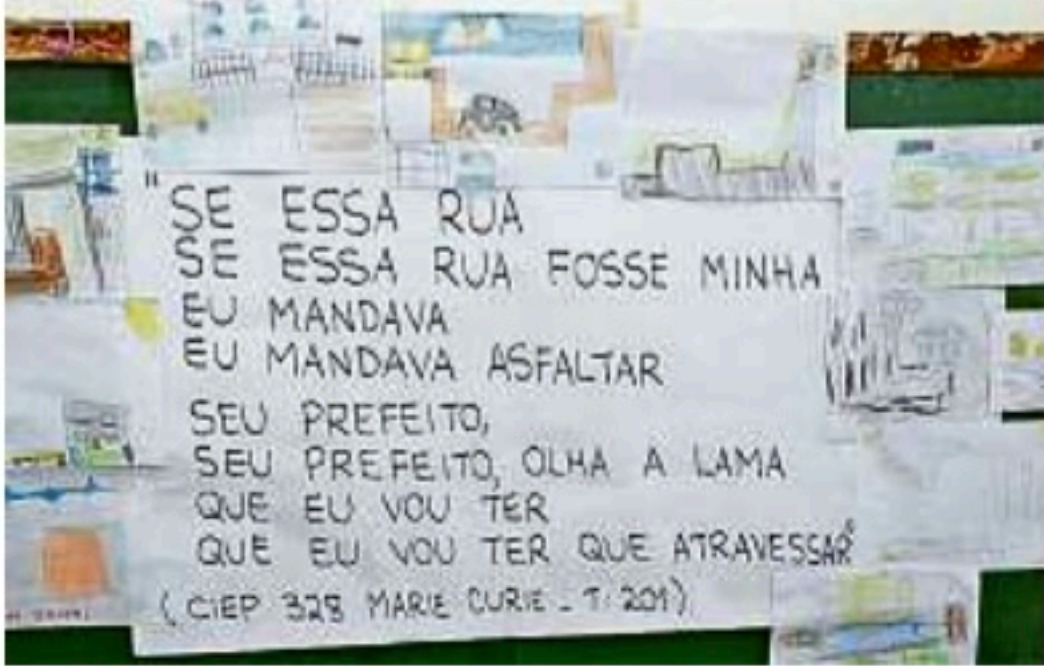 "SE ESSA RUA
SE ESSA RUA FOSSE MINHA
EU MANDAVA
EU MANDAVA ASFALTAR
SEU PREFEITO,
SEU PREFEITO, OLHA A LAMA
QUE EU VOU TER
QUE EU VOU TER QUE ATRAVESSAR"
(CIEP 328 MARIE CURIE - T: 201)